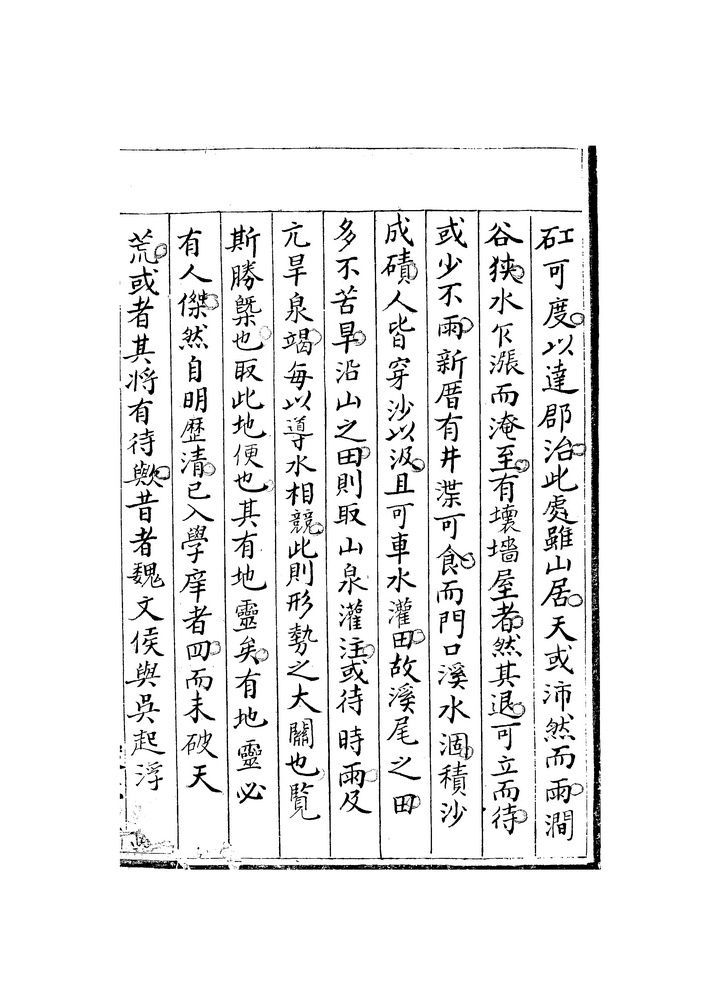 矼可度以達郡治此處雖山居天或沛然而雨澗
谷狹水乍漲而淹至有壞墻屋者然其退可立而待
或少不雨新厝有井渫可食而門口溪水涸積沙
成磧人皆穿沙以汲且可車水灌田故溪尾之田
多不苦旱沿山之田則取山泉灌注或待時雨及
亢旱泉竭每以導水相競此則形勢之大關也覧
斯勝槩也取此地便也其有地靈矣有地靈必
有人傑然自明歷清已入學庠者四而未破天
荒或者其将有待歟昔者魏文侯與吳起浮